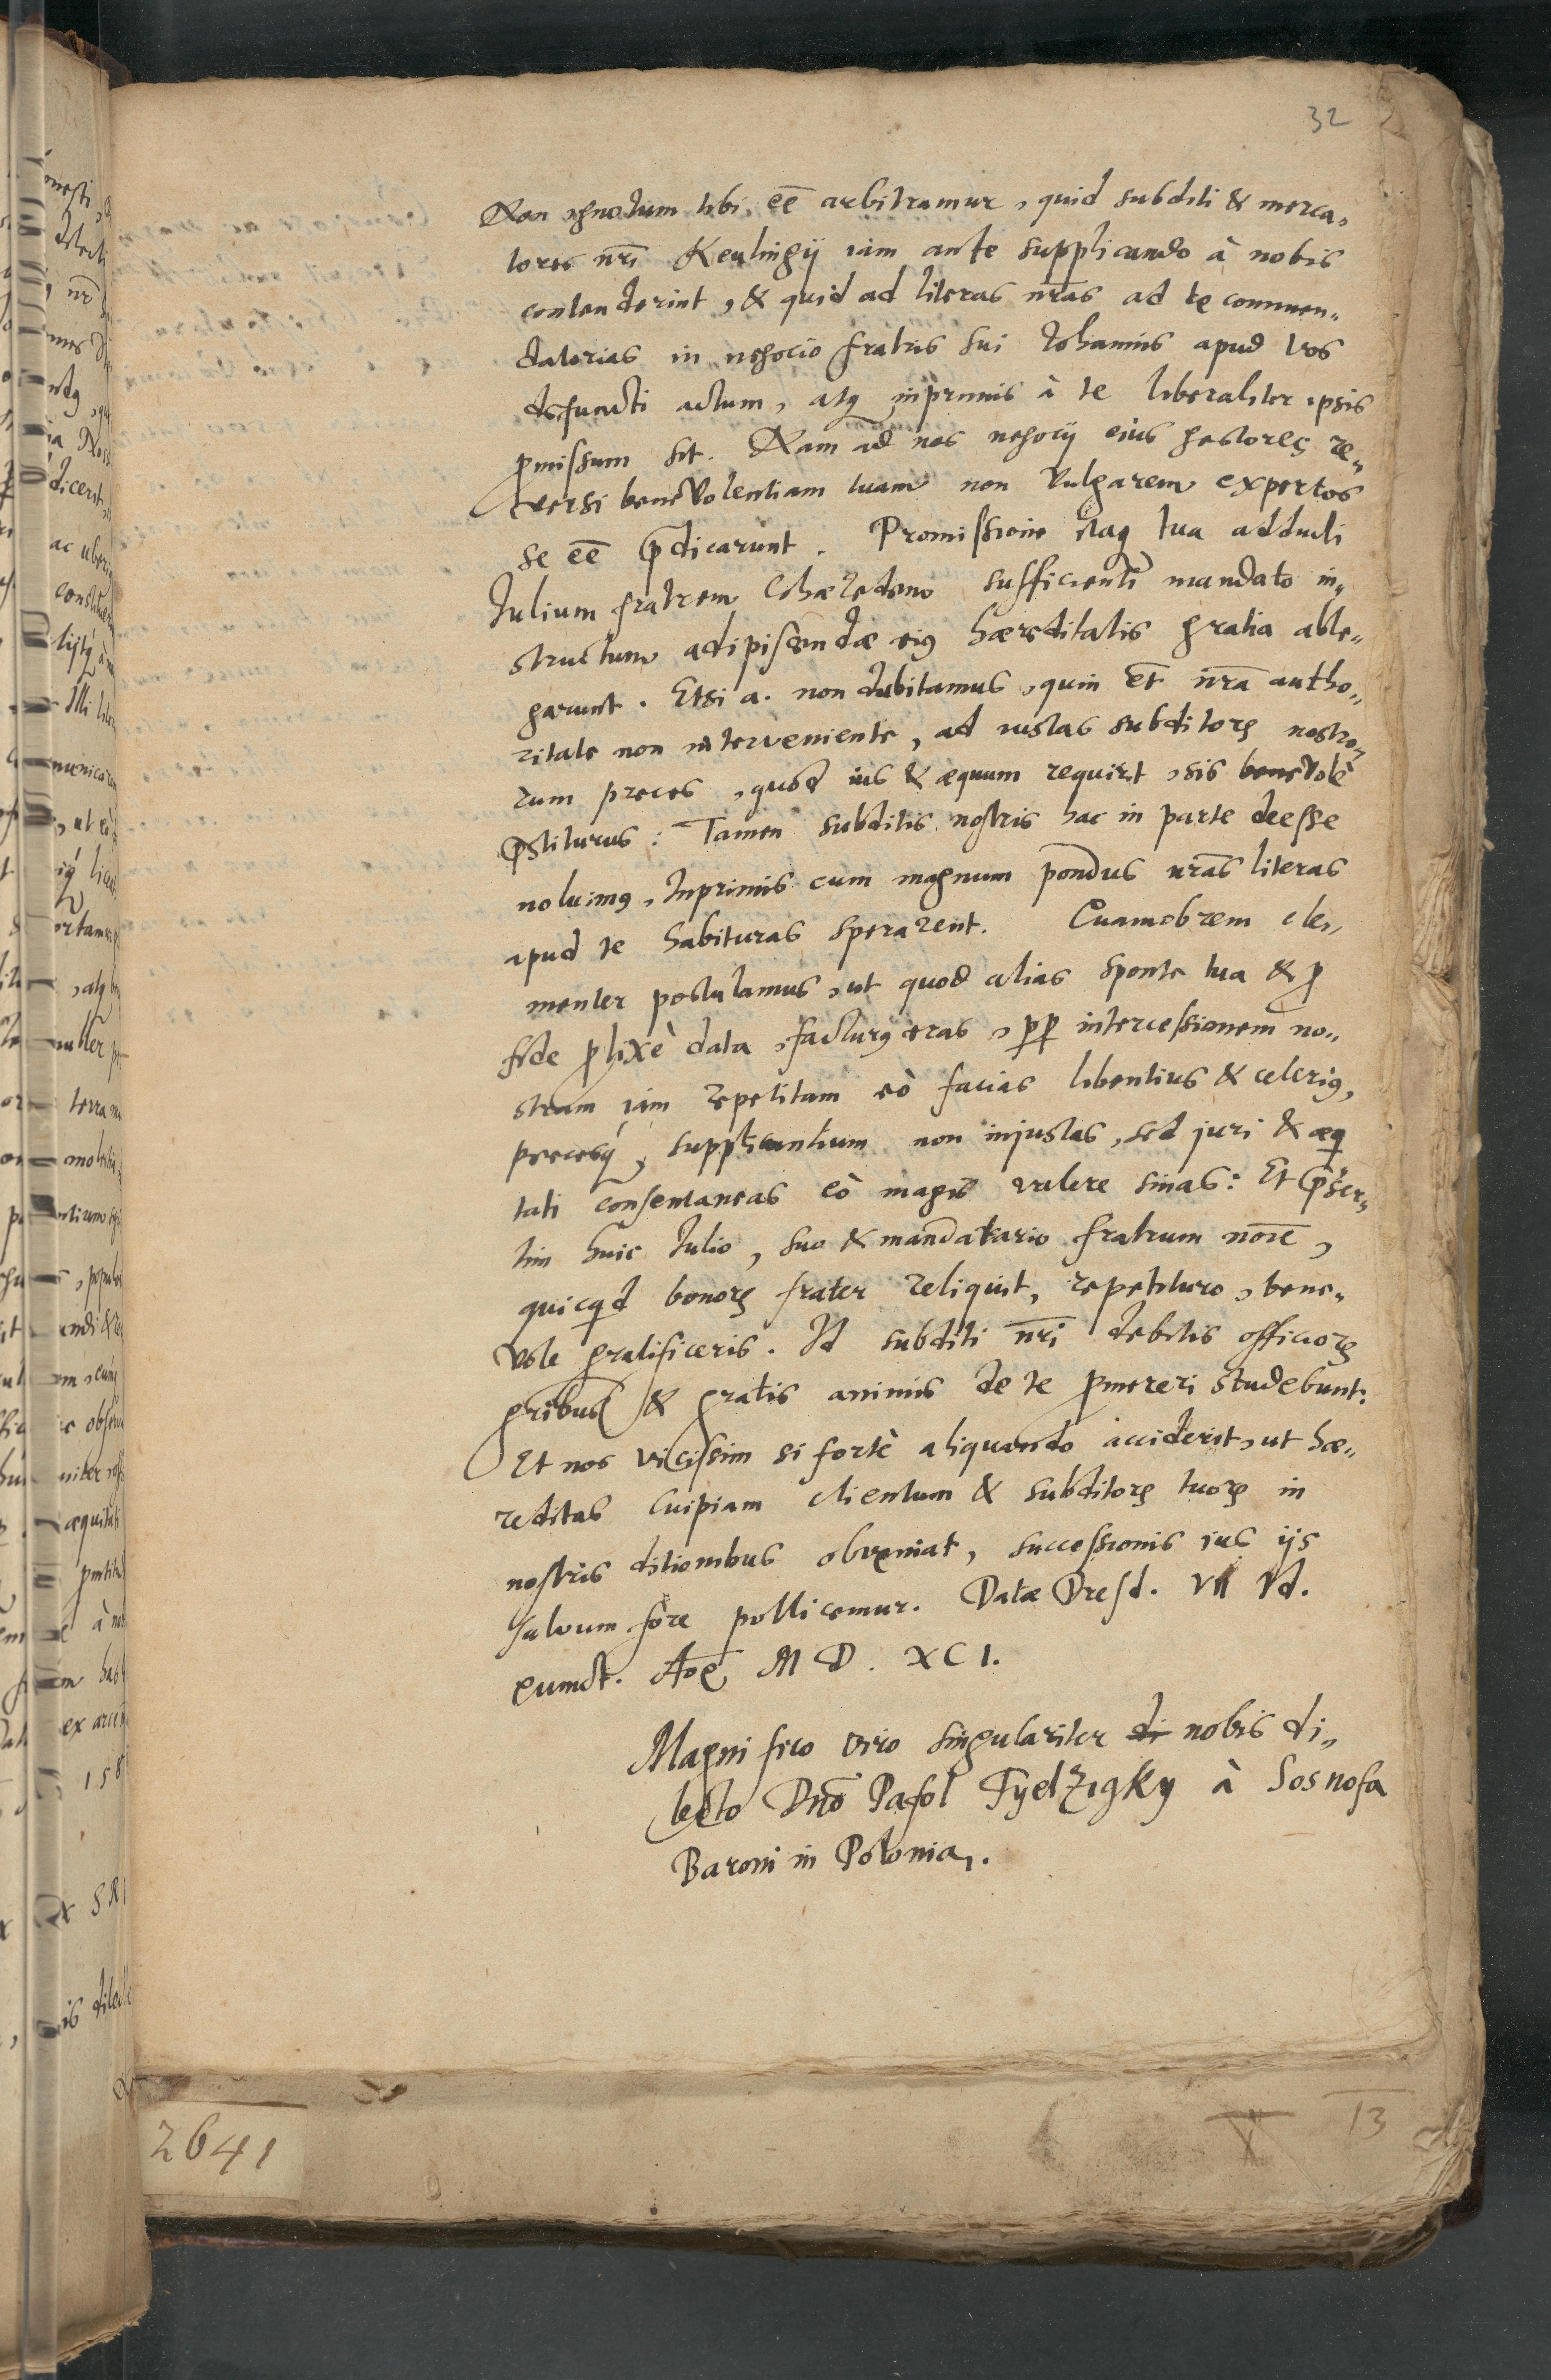 32
Non ignotum tibi eē arbitramur, quid subditi & merca,
tores nr̄i Keulingij iam ante supplicando à nobis
contenderint, & quid ad literas nr̄as ad te commen,,
datorias in negocio fratris sui Johannis apud vos
defuncti actum, atq inprimis à te liberaliter ipsis
ꝓmissum sit. Nam ad nos negocij eius gestores re,,
versi benevolentiam tuam non vulgarem expertos
se eē p̄dicarunt. Promissione itaq tua adducti
Julium fratrem Cohæredem sufficienti mandato in,,
structum adipiscendæ eiꝰ hæreditatis gratia able,,
garunt. Etsi a. non dubitamus, quin et nr̄a autho,,
ritate non interveniente, ad iustas subditorꝝ nostro,,
rum preces, quod ius & æquum requirit, sis benevolè
p̄stiturus: Tamen subditis nostris hac in parte deesse
noluimꝰ, Inprimis cum magnum pondus nr̄as literas
apud te habituras sperarent. Quamobrem cle,,
menter postulamus, ut quod alias sponte tua & ꝓ
fide ꝓlixè data, facturꝰ eras, ꝓp intercessionem no,,
stram iam repetitam eò facias libentius & celeriꝰ,
precesq, supplicantium non injustas, sed juri & æqi
tati consentaneas eò magis valere sinas: Et p̄ser,,
tim huic Julio, suo & mandatario fratrum noīe,
quicqd bonorꝝ frater reliquit, repetituro, bene,,
vole gratificeris. Id subditi nr̄i debitis officiorꝝ
gn̄ribus & gratis animis de te ꝓmereri studebunt:
Et nos vicissim si fortè aliquando acciderit, ut hæ,,
reditas cuipiam clientum & subditorꝝ tuorꝝ in
nostris ditionibus obveniat, successionis ius ijs
salvum fore pollicemur. Datæ Dresd. VII Vd.
Aoē M D. XCI.
Magnifico viro singulariter di nobis di,
lecto Dn̄o Pafol Tyelzigky à Sosnofa
Baroni in Polonia.
2641
13